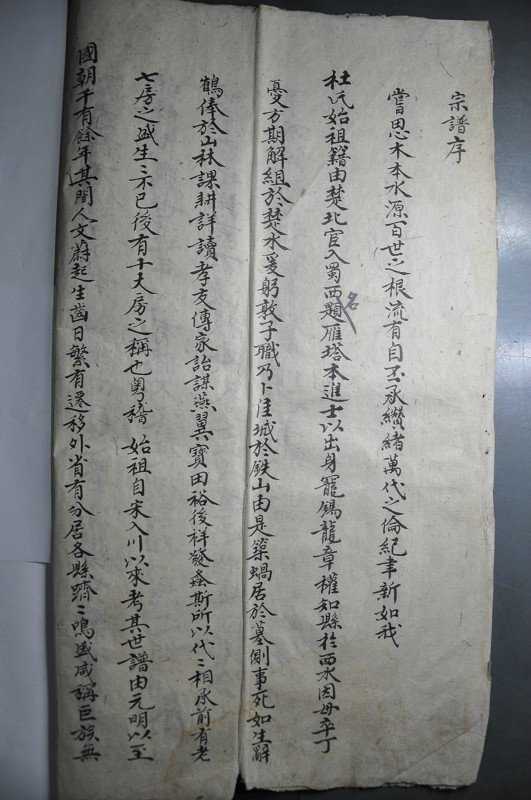 宗譜序
嘗思木本水源百世之根流有自丕承纘緒萬代之倫紀聿新如我
杜氏始祖籍由楚北宦入蜀西題名雁塔本進士以出身寵錫龍章權知縣於西水因母卒丁
憂方期解組於楚水爰躬敦子職乃卜佳城於鉄山由是築蝸居於墓側事死如生辭
鶴俸於山林課耕詳讀孝友傳家詒謀燕翼寶田裕後祥發螽斯所以代〻相承前有老
七房之盛生〻不已後有十大房之稱也粵稽 始祖自宋入川以來考其世譜由元明以至
國朝千有餘年其間人文蔚起生齒日繁有遷移外省有分居各縣躋〻鳴盛咸稱巨族無